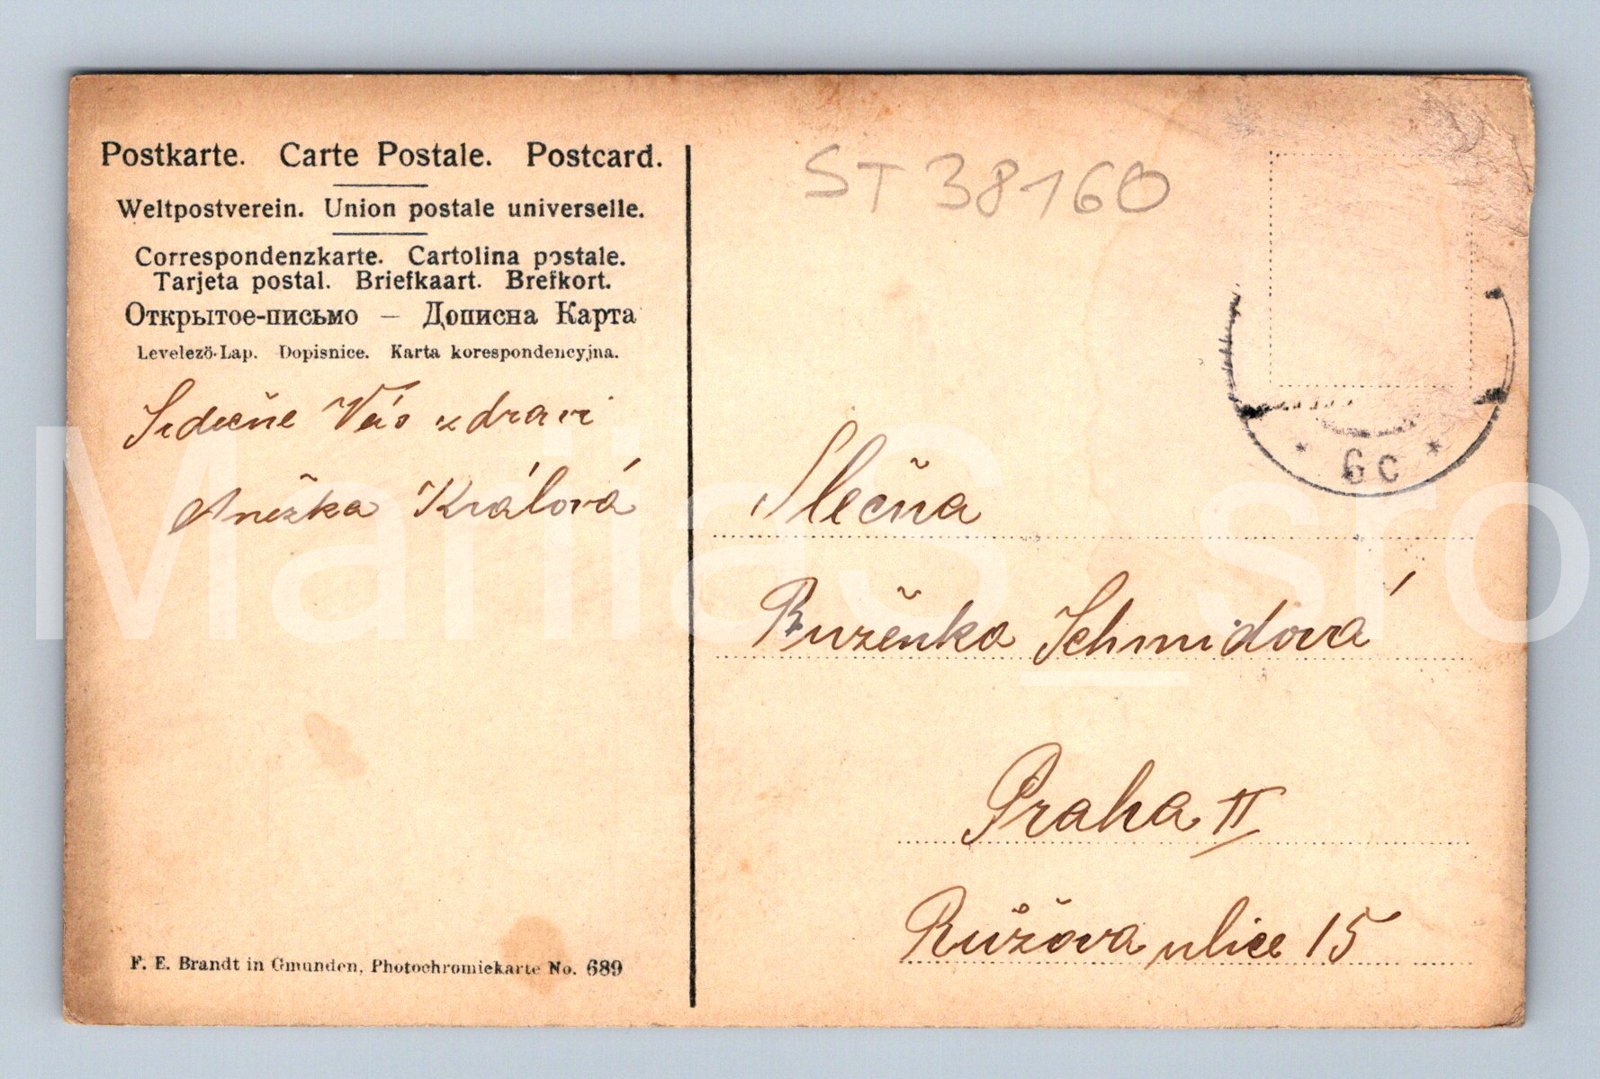 Postkarte. Carte Postale. Postcard.
Weltpostverein. Union postale universelle.
Correspondenzkarte. Cartolina postale.
Tarjeta postal. Briefkaart. Brefkort.
Открытое-письмо — Дописна Карта
Levelező-Lap. Dopisnice. Karta korespondencyjna.
Srdečne Vás zdraví
Anežka Králová
F. E. Brandt in Gmunden, Photochromiekarte No. 689
ST 38160
* 6c *
Slečna
Ruženka Schmidová
Praha II
Růžova ulice 15
MariiaS_sro